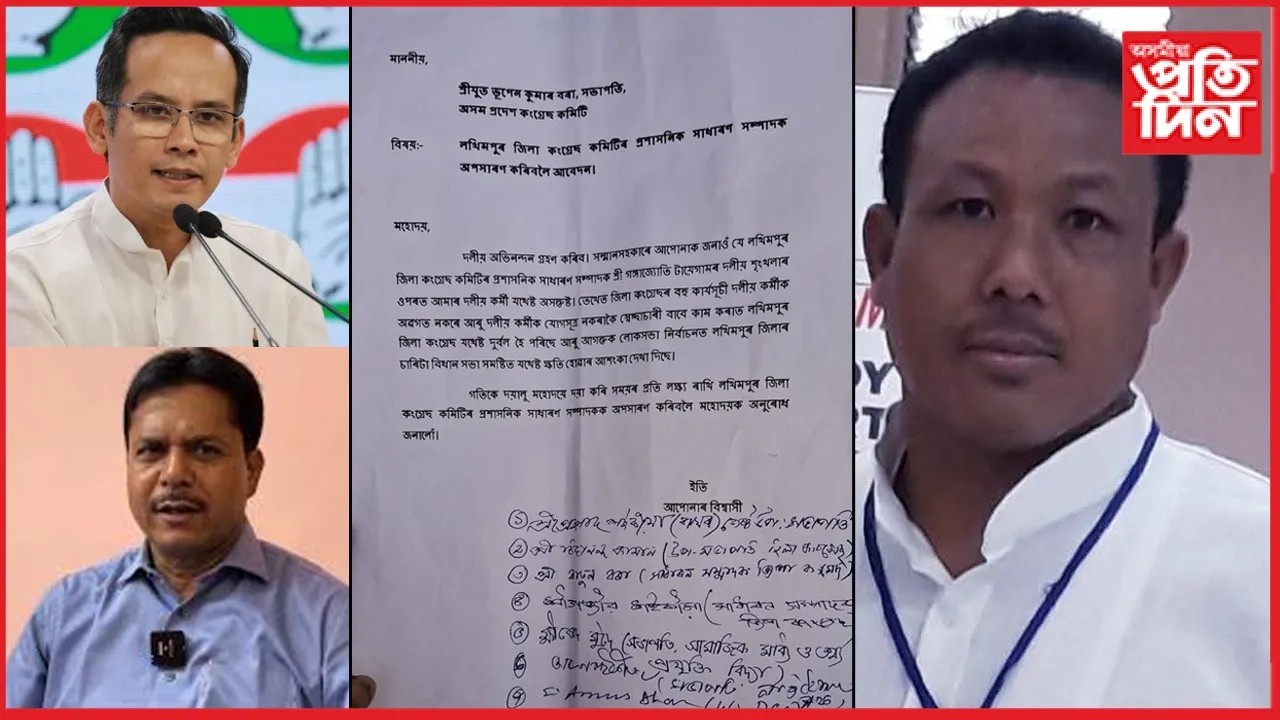 অসমীয়া
প্ৰতি
দিন
মাননীয়,
শ্ৰীযুত ভূপেন কুমাৰ বৰা, সভাপতি,
অসম প্ৰদেশ কংগ্ৰেছ কমিটি
বিষয়:- লখিমপুৰ জিলা কংগ্ৰেছ কমিটিৰ প্ৰশাসনিক সাধাৰণ সম্পাদক
অপসাৰণ কৰিবলৈ আবেদন।
মহোদয়,
দলীয় অভিনন্দন গ্ৰহণ কৰিব। সন্মানসহকাৰে আপোনাক জনাওঁ যে লখিমপুৰ
জিলা কংগ্ৰেছ কমিটিৰ প্ৰশাসনিক সাধাৰণ সম্পাদক শ্ৰী গঙ্গাজ্যোতি টায়েগামৰ দলীয় শৃংখলাৰ
ওপৰত আমাৰ দলীয় কৰ্মী যথেষ্ট অসন্তুষ্ট। তেখেত জিলা কংগ্ৰেছৰ বহু কাৰ্যসূচী দলীয় কৰ্মীক
অৱগত নকৰে আৰু দলীয় কৰ্মীক যোগসূত্ৰ নকৰাকৈ স্বেচ্ছাচাৰী বাবে কাম কৰাত লখিমপুৰ
জিলা কংগ্ৰেছ যথেষ্ট দুৰ্বল হৈ পৰিছে আৰু আগন্তুক লোকসভা নিৰ্বাচনত লখিমপুৰ জিলাৰ
চাৰিটা বিধান সভা সমষ্টিত যথেষ্ট ক্ষতি হোৱাৰ আশংকা দেখা দিছে।
গতিকে দয়ালু মহোদয়ে দয়া কৰি সময়ৰ প্ৰতি লক্ষ্য ৰাখি লখিমপুৰ জিলা
কংগ্ৰেছ কমিটিৰ প্ৰশাসনিক সাধাৰণ সম্পাদকক অপসাৰণ কৰিবলৈ মহোদয়ক অনুৰোধ
জনালোঁ।
ইতি
আপোনাৰ বিশ্বাসী
১
২ শ্ৰী
৩ শ্ৰী ৰাতুল বৰা (সাধাৰণ সম্পাদক জিলা
৪ (সাধাৰণ সম্পাদক
৫ (সভাপতি, সামাজিক মাধ্য ও তথ্য
৬ প্ৰযুক্তি বিভাগ)
৭